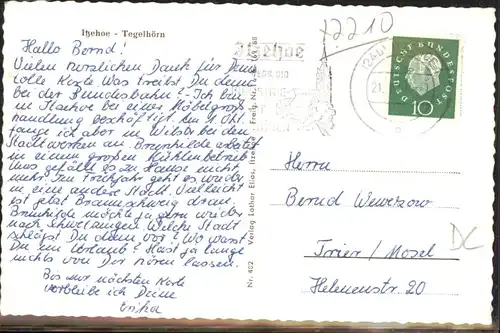 Itzehoe - Tegelhörn
Hallo Bernd!
Vielen herzlichen Dank für Deine
tolle Karte. Was treibst Du denn
bei der Bundesbahn? - Ich bin
in Itzehoe bei einer Möbelgroß-
handlung beschäftigt. Am 1. Okt.
fange ich aber in Wilster bei den
Stadtwerken an. Brunhilde arbeitet
in einem großen Mühlenbetrieb.
Uns gefällt es zu Hause nicht
mehr. Im Frühjahr geht es wieder
in eine andere Stadt. Vielleicht
ist jetzt Braunschweig dran.
Brunhilde möchte ja gern wieder
nach Schwetzingen. Welche Stadt
schlägst Du denn vor? Wo warst
Du im Urlaub? Hast ja lange
nichts von Dir hören lassen.
Bis zur nächsten Karte
verbleibe ich Deine
Erika
Nr. 402 Verlag Lothar
Itzehoe
x2210
DEUTSCHE BUNDESPOST
10
Herrn
Bernd
Trier / Mosel
Helenenstr. 20
DC